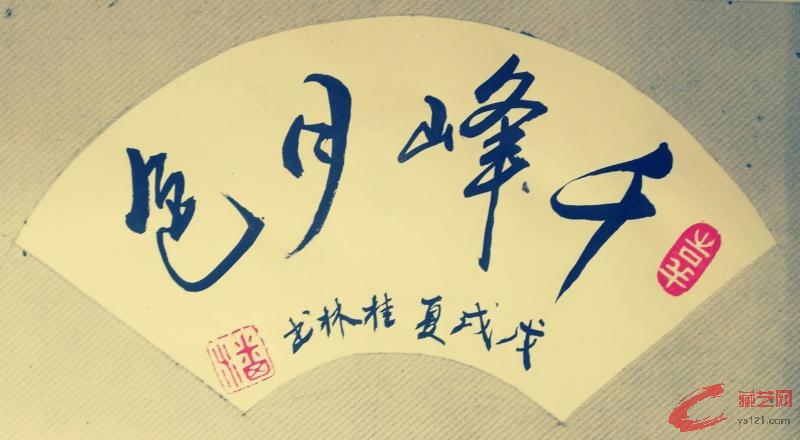 千峰月色
戊戌夏桂林书
藏艺网
ys121.com